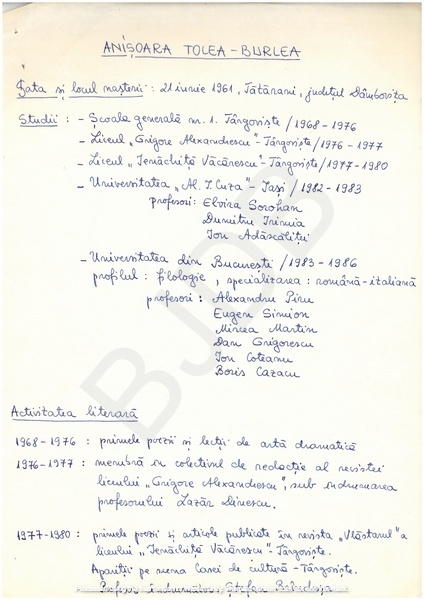 ANIȘOARA TOLEA-BURLEA
Data și locul nașterii: 21 iunie 1961, Tătărani, județul Dâmbovița
Studii: - Școala generală nr. 1. Târgoviște / 1968 - 1976
- Liceul „Grigore Alexandrescu" - Târgoviște / 1976 - 1977
- Liceul „Ienăchiță Văcărescu" - Târgoviște / 1977 - 1980
- Universitatea „Al. I. Cuza" - Iași / 1982 - 1983
profesori: Elvira Sorohan
Dumitru Irimia
Ion Adăscăliței
- Universitatea din București / 1983 - 1986
profilul: filologie, specializarea: română-italiană
profesori: Alexandru Piru
Eugen Simion
Mircea Martin
Dan Grigorescu
Ion Coteanu
Boris Cazacu
Activitatea literară
1968 - 1976: primele poezii și lecții de artă dramatică
1976 - 1977: membră în colectivul de redacție al revistei
liceului „Grigore Alexandrescu", sub îndrumarea
profesorului Lazăr Dinescu.
1977 - 1980: primele poezii și articole publicate în revista „Vlăstarul" a
liceului „Ienăchiță Văcărescu" - Târgoviște.
Apariții pe scena Casei de cultură - Târgoviște.
Profesor îndrumător: Ștefan
BJDB